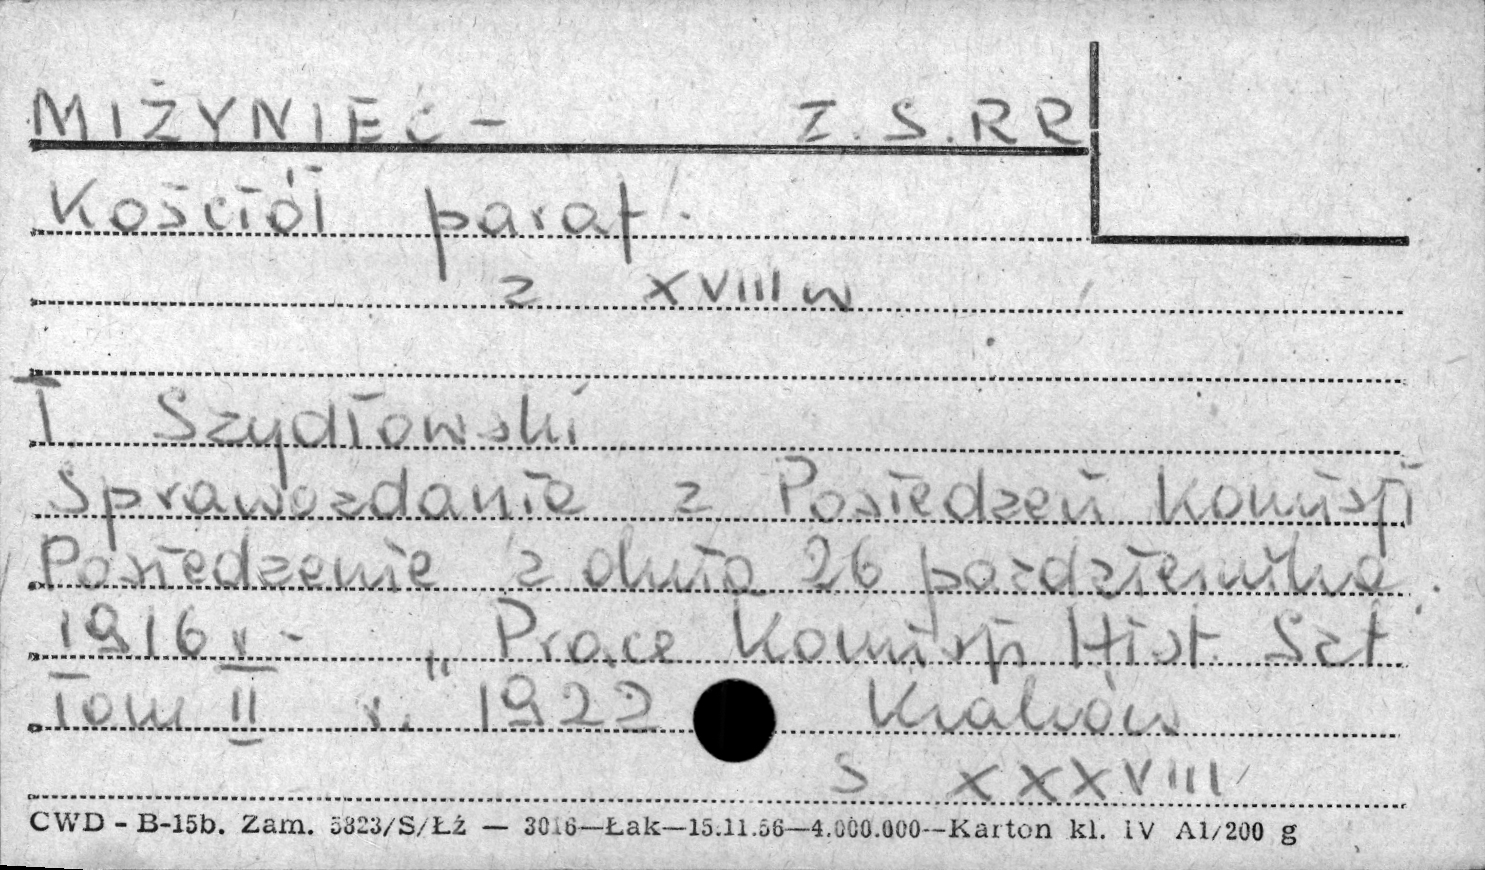 MIŻYNIEC - Z.S.RR
Kościół paraf.
z XVIII w
T. Szydłowski
Sprawozdanie z Posiedzeń Komisji
Posiedzenie z dnia 26 pazdziernika
1916 r. - „Prace Komisji Hist. Szt
Tom II" r. 1922 Kraków
S XXXVIII
CWD - B-15b. Zam. 5823/S/Łż — 3016—Łak—15.11.56—4.000.000—Karton kl. IV A1/200 g